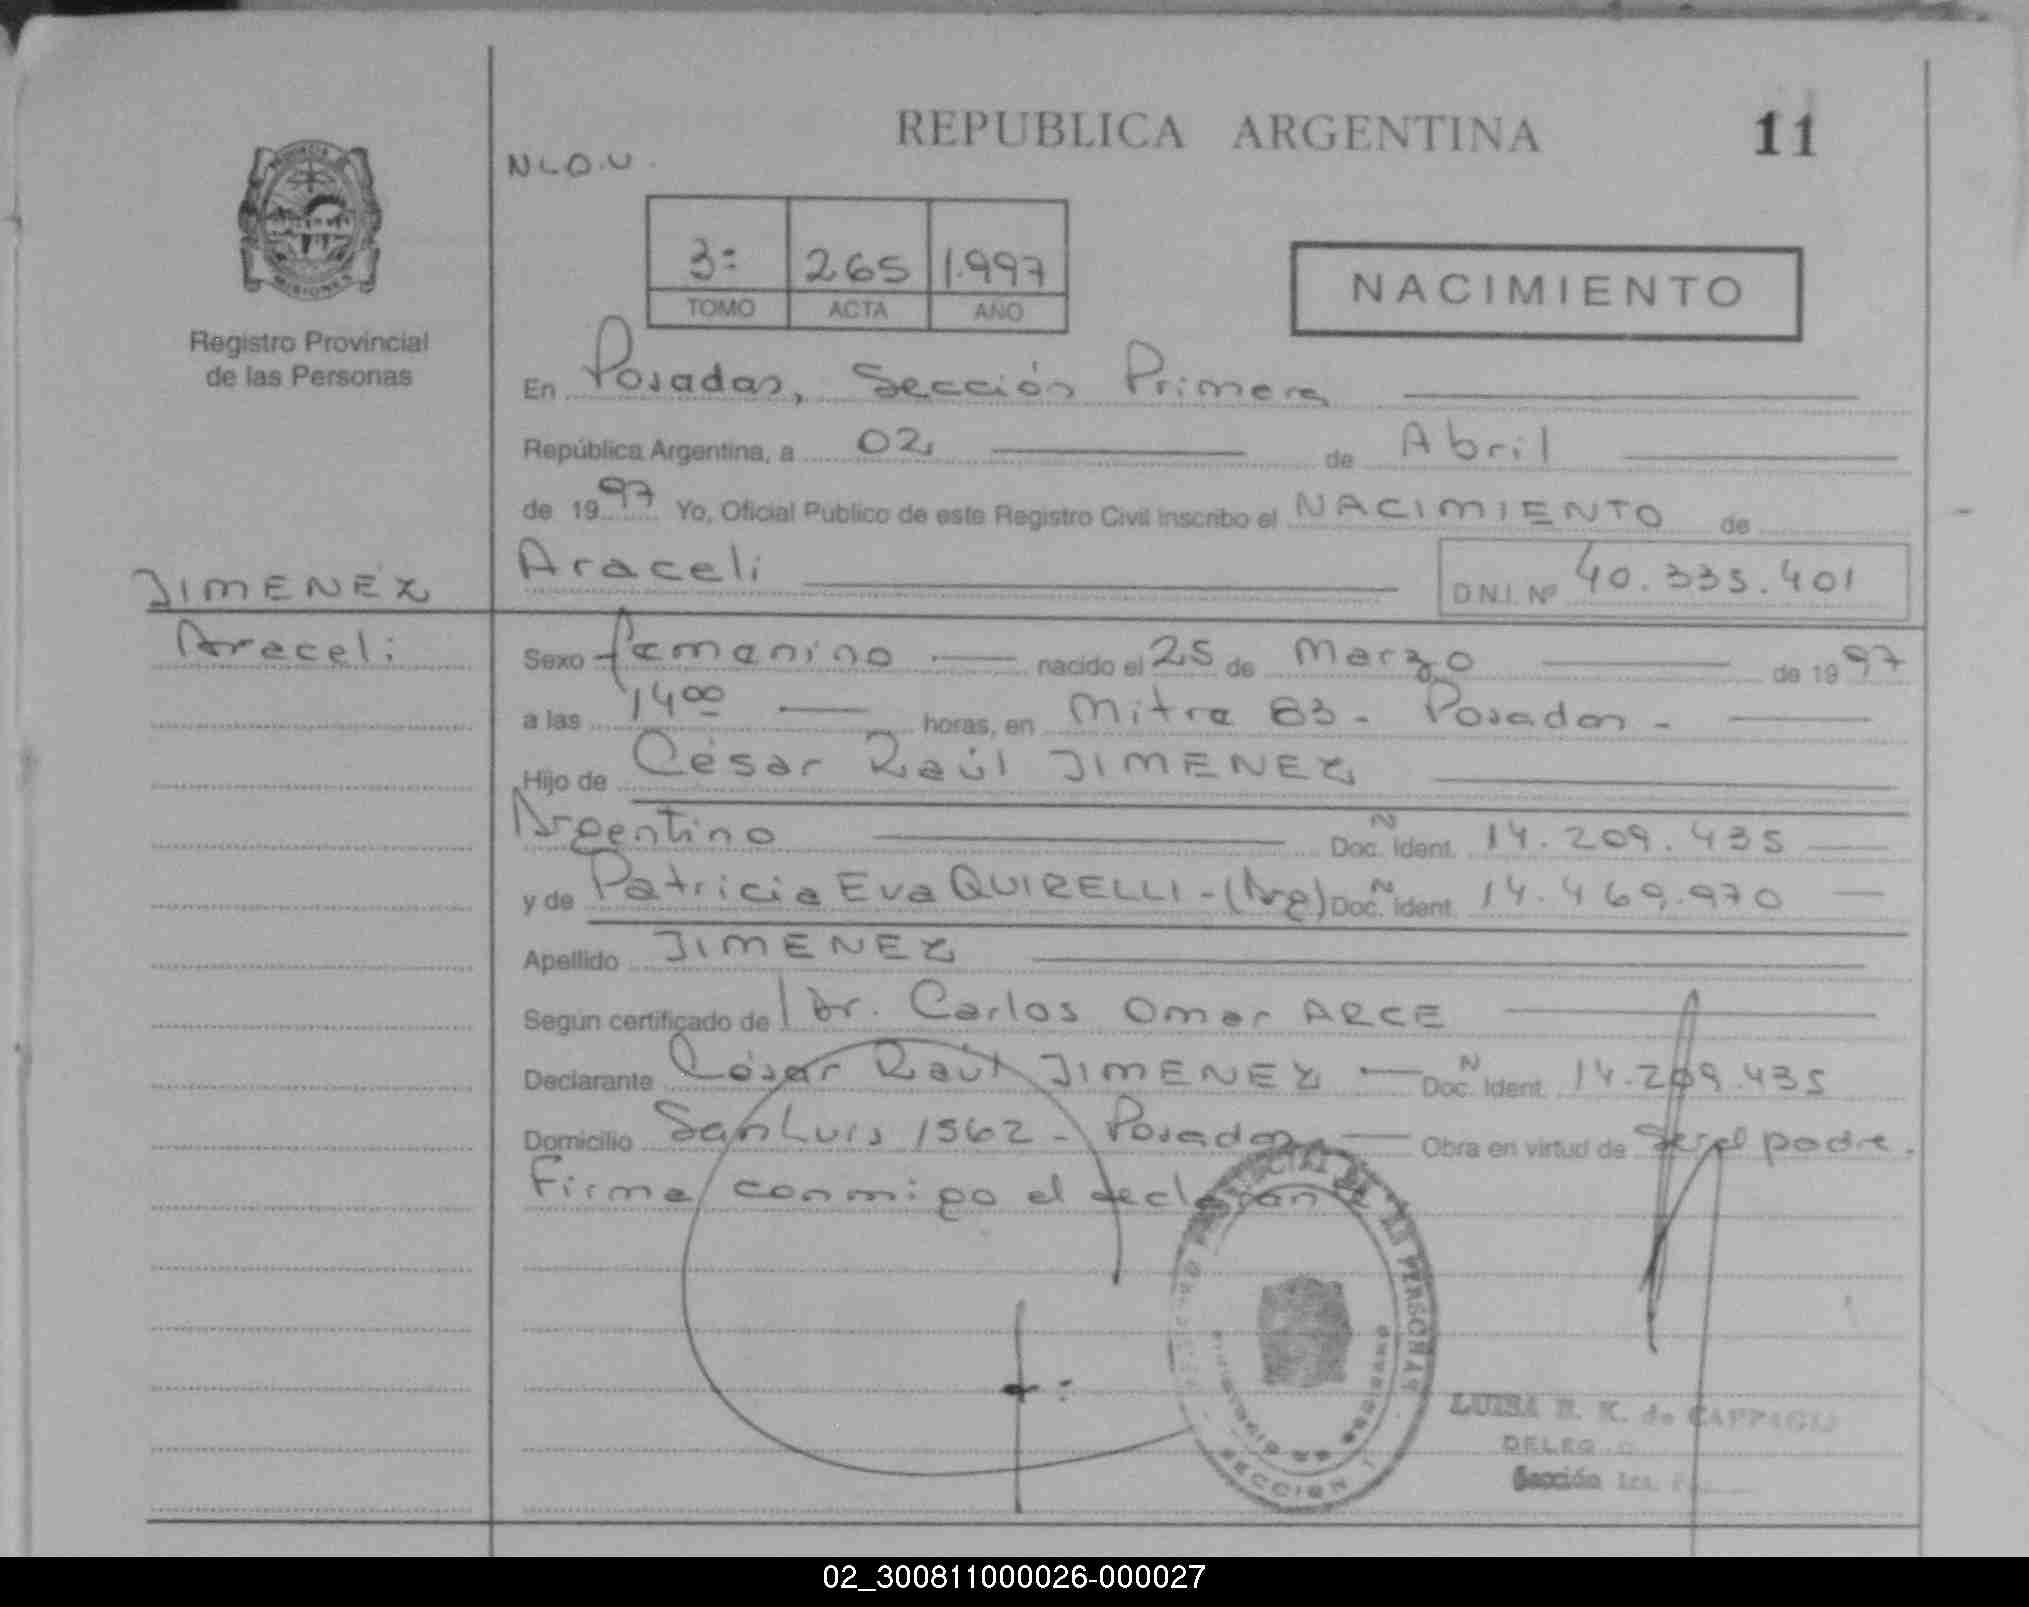 REPUBLICA ARGENTINA
11
PROVINCIA
MISIONES
Registro Provincial
de las Personas
3=
265
1.997
TOMO
ACTA
AÑO
NACIMIENTO
En Posadas, Sección Primera
República Argentina, a 02 de Abril
de 1997 Yo, Oficial Público de este Registro Civil inscribo el NACIMIENTO de
JIMENEZ
Araceli
Araceli
D.N.I. Nº 40.335.401
Sexo femenino nacido el 25 de Marzo de 1997
a las 14 00 horas, en Mitre 83 - Posadas -
Hijo de César Raúl JIMENEZ
Argentino N Doc. Ident. 14.209.435
y de Patricia Eva QUIRELLI - (Arg) N Doc. Ident. 14.469.970
Apellido JIMENEZ
Según certificado de Dr. Carlos Omar ARCE
Declarante César Raúl JIMENEZ N Doc. Ident. 14.209.435
Domicilio San Luis 1562 - Posadas Obra en virtud de ser el padre.
Firma conmigo el declarante
DE LAS PERSONAS
MINISTERIO DE GOBIERNO
SECCION 1
LUISA K. de
Sección 1ra.
02_300811000026-000027